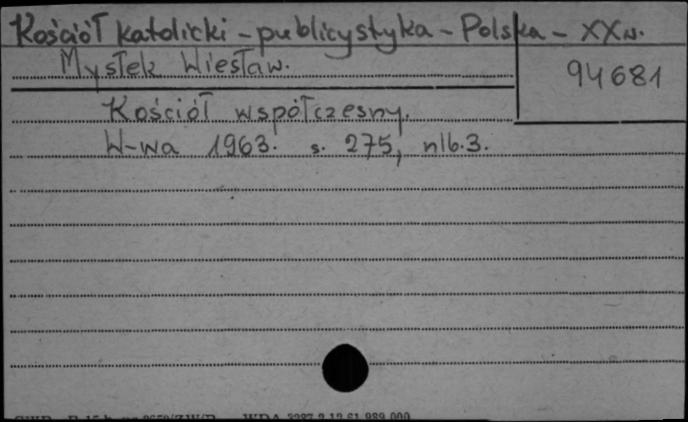 Kościół katolicki - publicystyka - Polska - XX w.
Mysłek Wiesław.
94681
Kościół współczesny.
W-wa 1963. s. 275, nlb. 3.